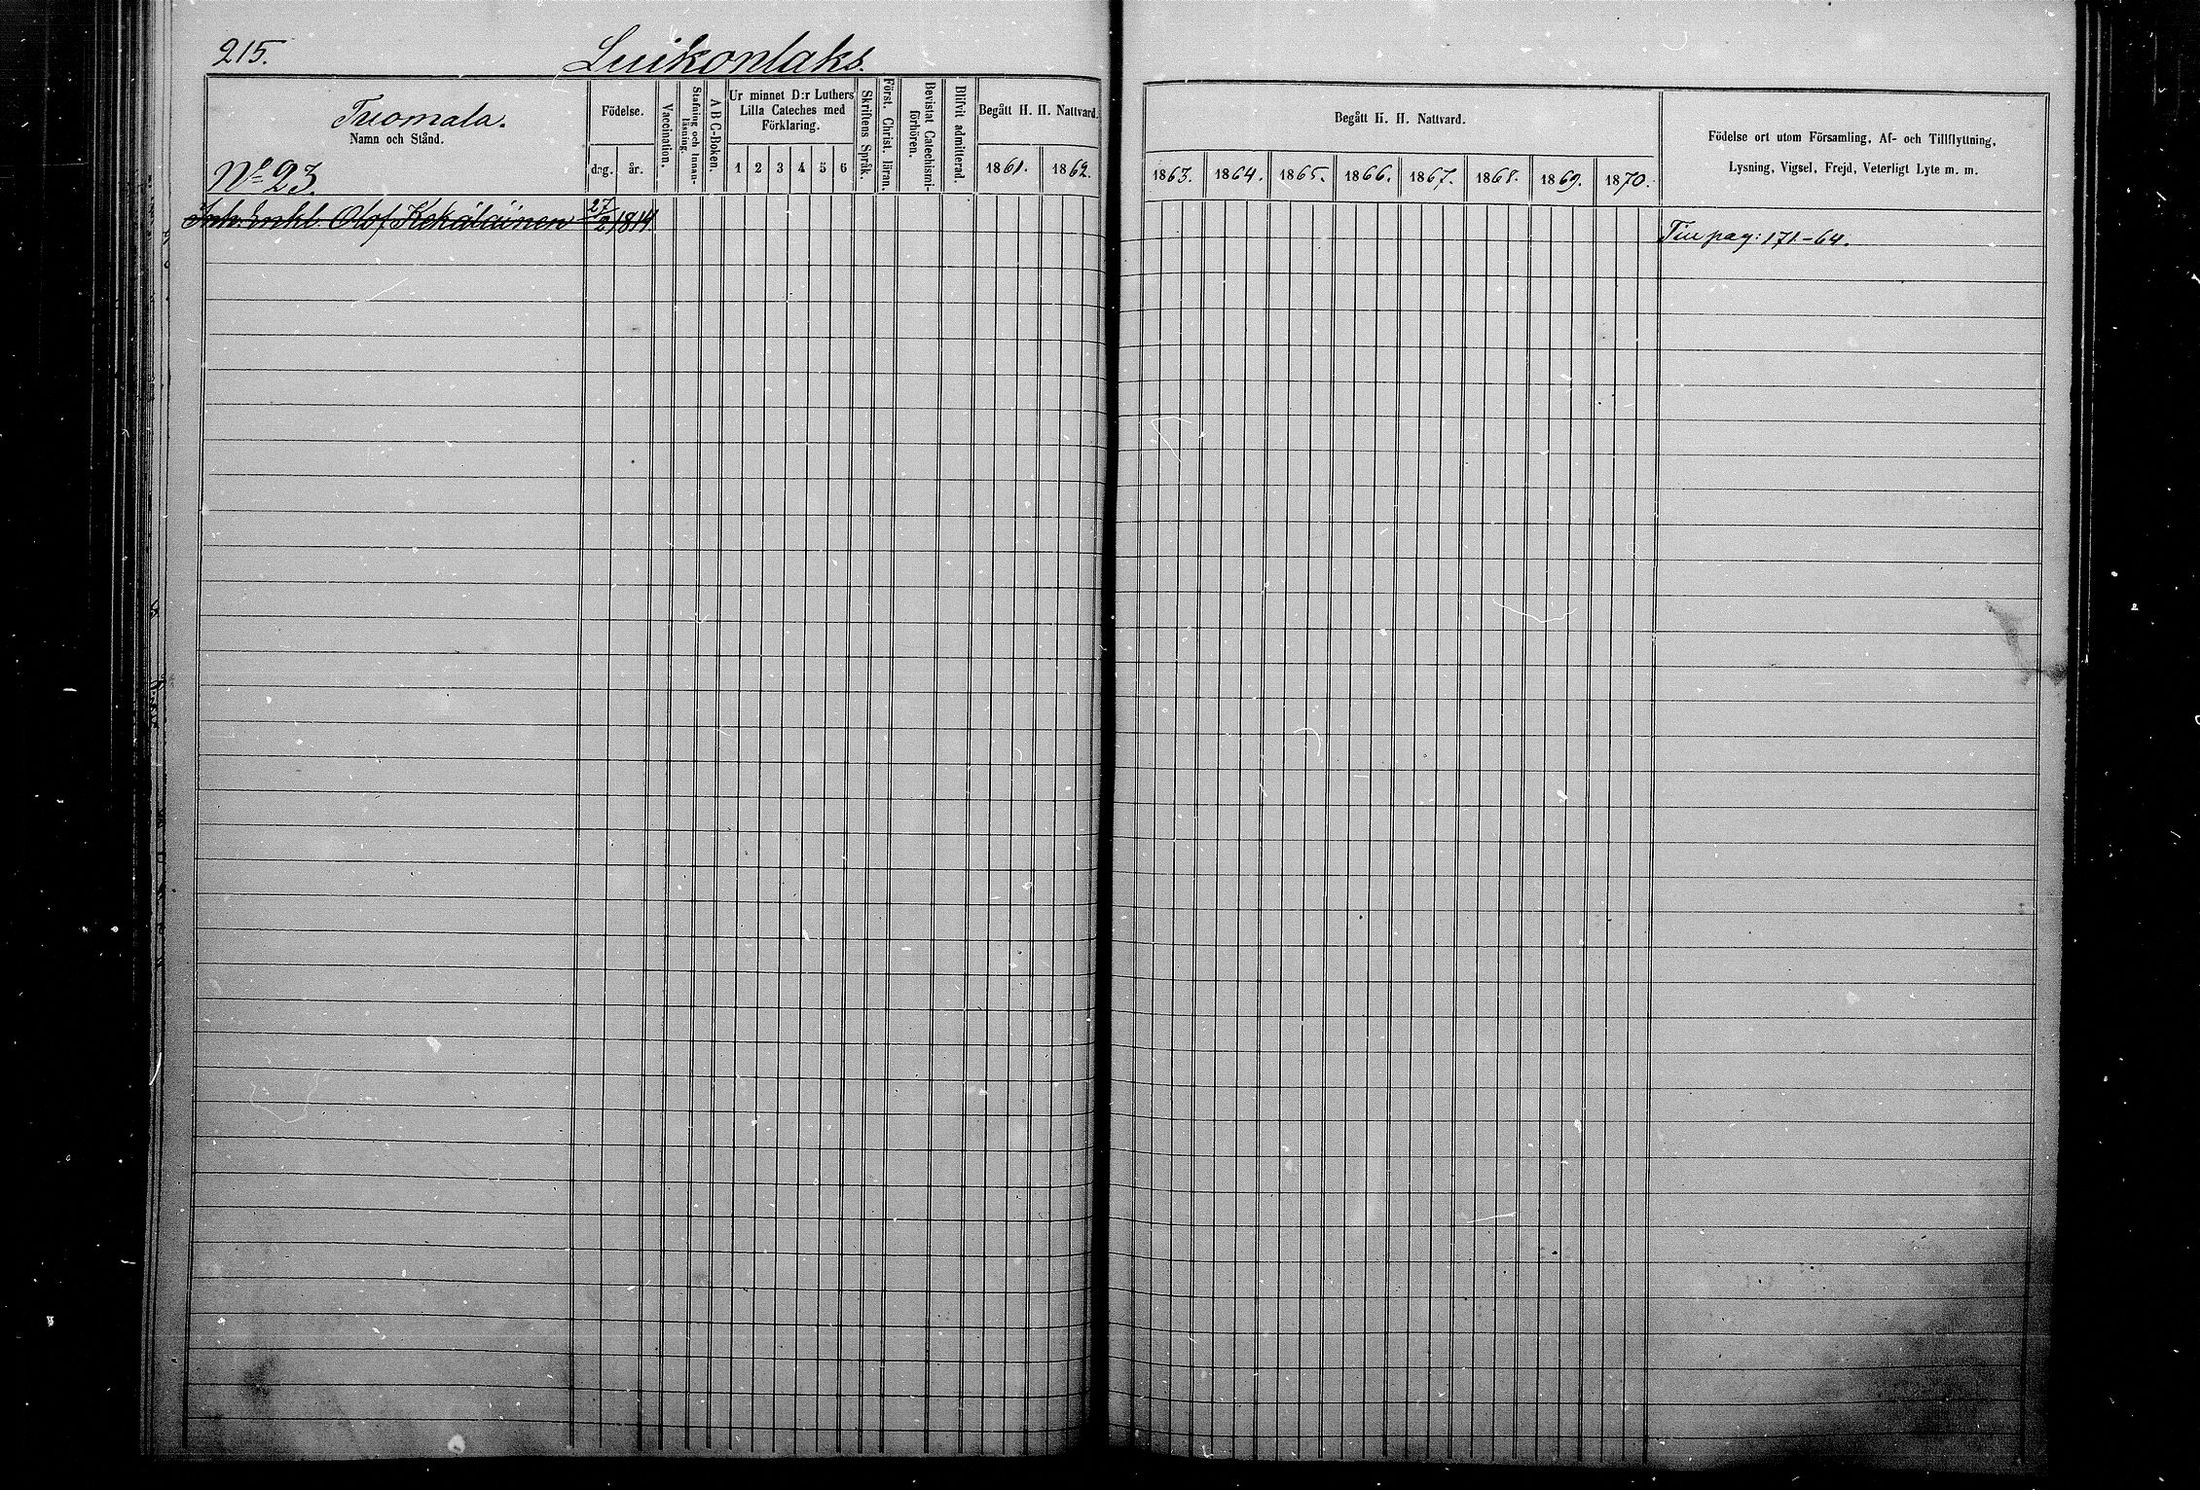 215.
Luikonlaks.
Tuomala.
Namn och Stånd.
No 23.
Födelse.
dag. år.
Vaccination.
Stafning och Innanläsning.
A B C-Boken.
Ur minnet D:r Luthers
Lilla Cateches med
Förklaring.
1 2 3 4 5 6
Skriftens Språk.
Först. Christ. läran.
Bevistat Catechismiförhören.
Blifvit admitterad.
Begått H. H. Nattvard.
1861. 1862.
Begått H. H. Nattvard.
1863. 1864. 1865. 1866. 1867. 1868. 1869. 1870.
Födelse ort utom Församling, Af- och Tillflyttning,
Lysning, Vigsel, Frejd, Veterligt Lyte m. m.
Inh. Enkl. Olof Kekäläinen 27/2 1814
Till pag: 171.-64.